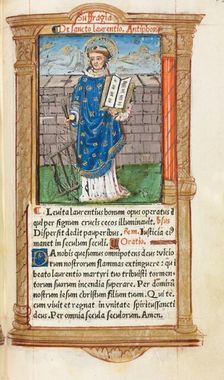 Suffragia
De sancto laurentio. Antiphona
Leuita laurentius bonum opus operatus ē
qui per signum crucis cecos illuminauit. Vsus
Disperſit dedit pauperibus. Rem. Iuſticia eiᵒ
manet in seculum seculi. Oratio.
DA nobis quesumus omnipotens deus vicio
rum nostrorum flammas extinguere: qui
beato laurentio martyri tuo tribuisti tormen
torum suorum incendia superare. Per dominū
nostrum iesum christum filium tuum. Qui te
cum viuit et regnat in vnitate spiritussancti
deus. Per omnia secula seculorum. Amen.